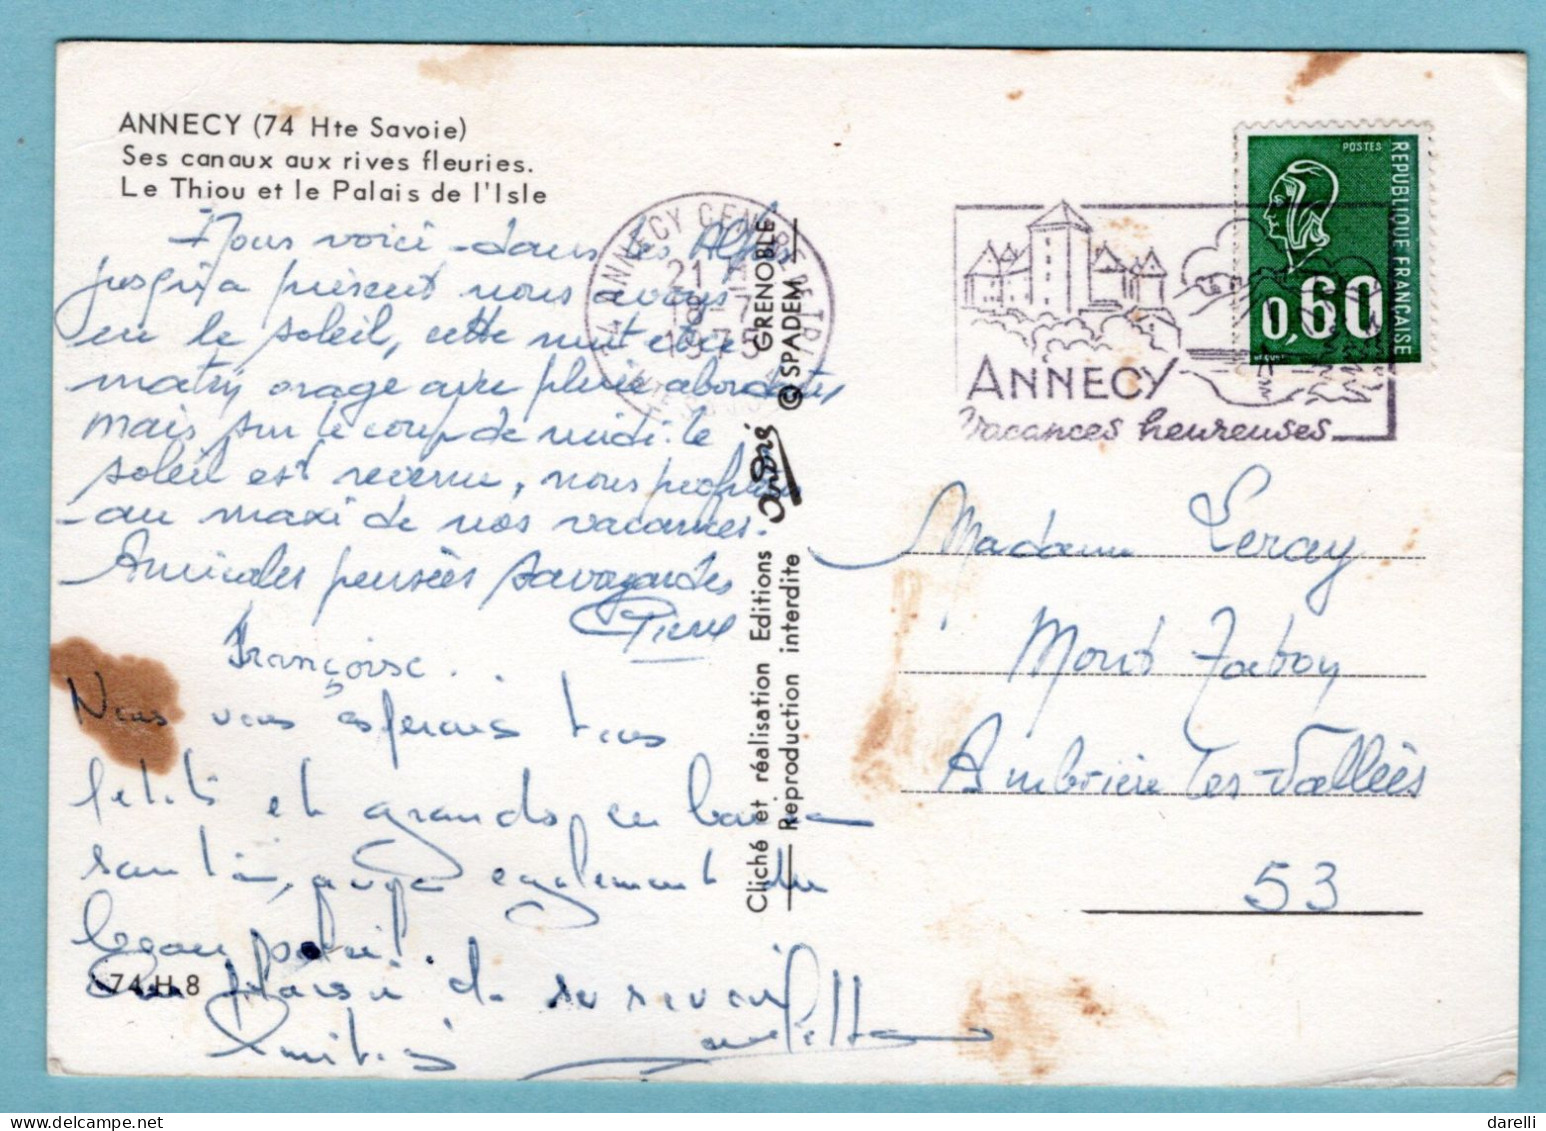 ANNECY (74 Hte Savoie)
Ses canaux aux rives fleuries.
Le Thiou et le Palais de l'Isle
Nous voici dans les Alpes
jusqu'à présent nous avons
eu le soleil, cette nuit et ce
matin orage avec pluie abondante
mais sur le coup de midi le
soleil est revenu, nous profitons
au maxi de nos vacances.
Amicales pensées savoyardes
Pierre
Françoise.
Nous vous espérons tous
petits et grands en bonne
santé, avec également du
beau soleil.
Au plaisir de se revoir
Amitiés
74 H 8
74 ANNECY CENTRE DE TRI
21 H
18-7
1975
HTE SAVOIE
GRENOBLE
© SPADEM
André
Cliché et réalisation Editions
Reproduction interdite
ANNECY
Vacances heureuses
POSTES
REPUBLIQUE FRANÇAISE
0,60
BEQUET
Madame Leray
Mont
Ambrière les Vallées
53
darelli